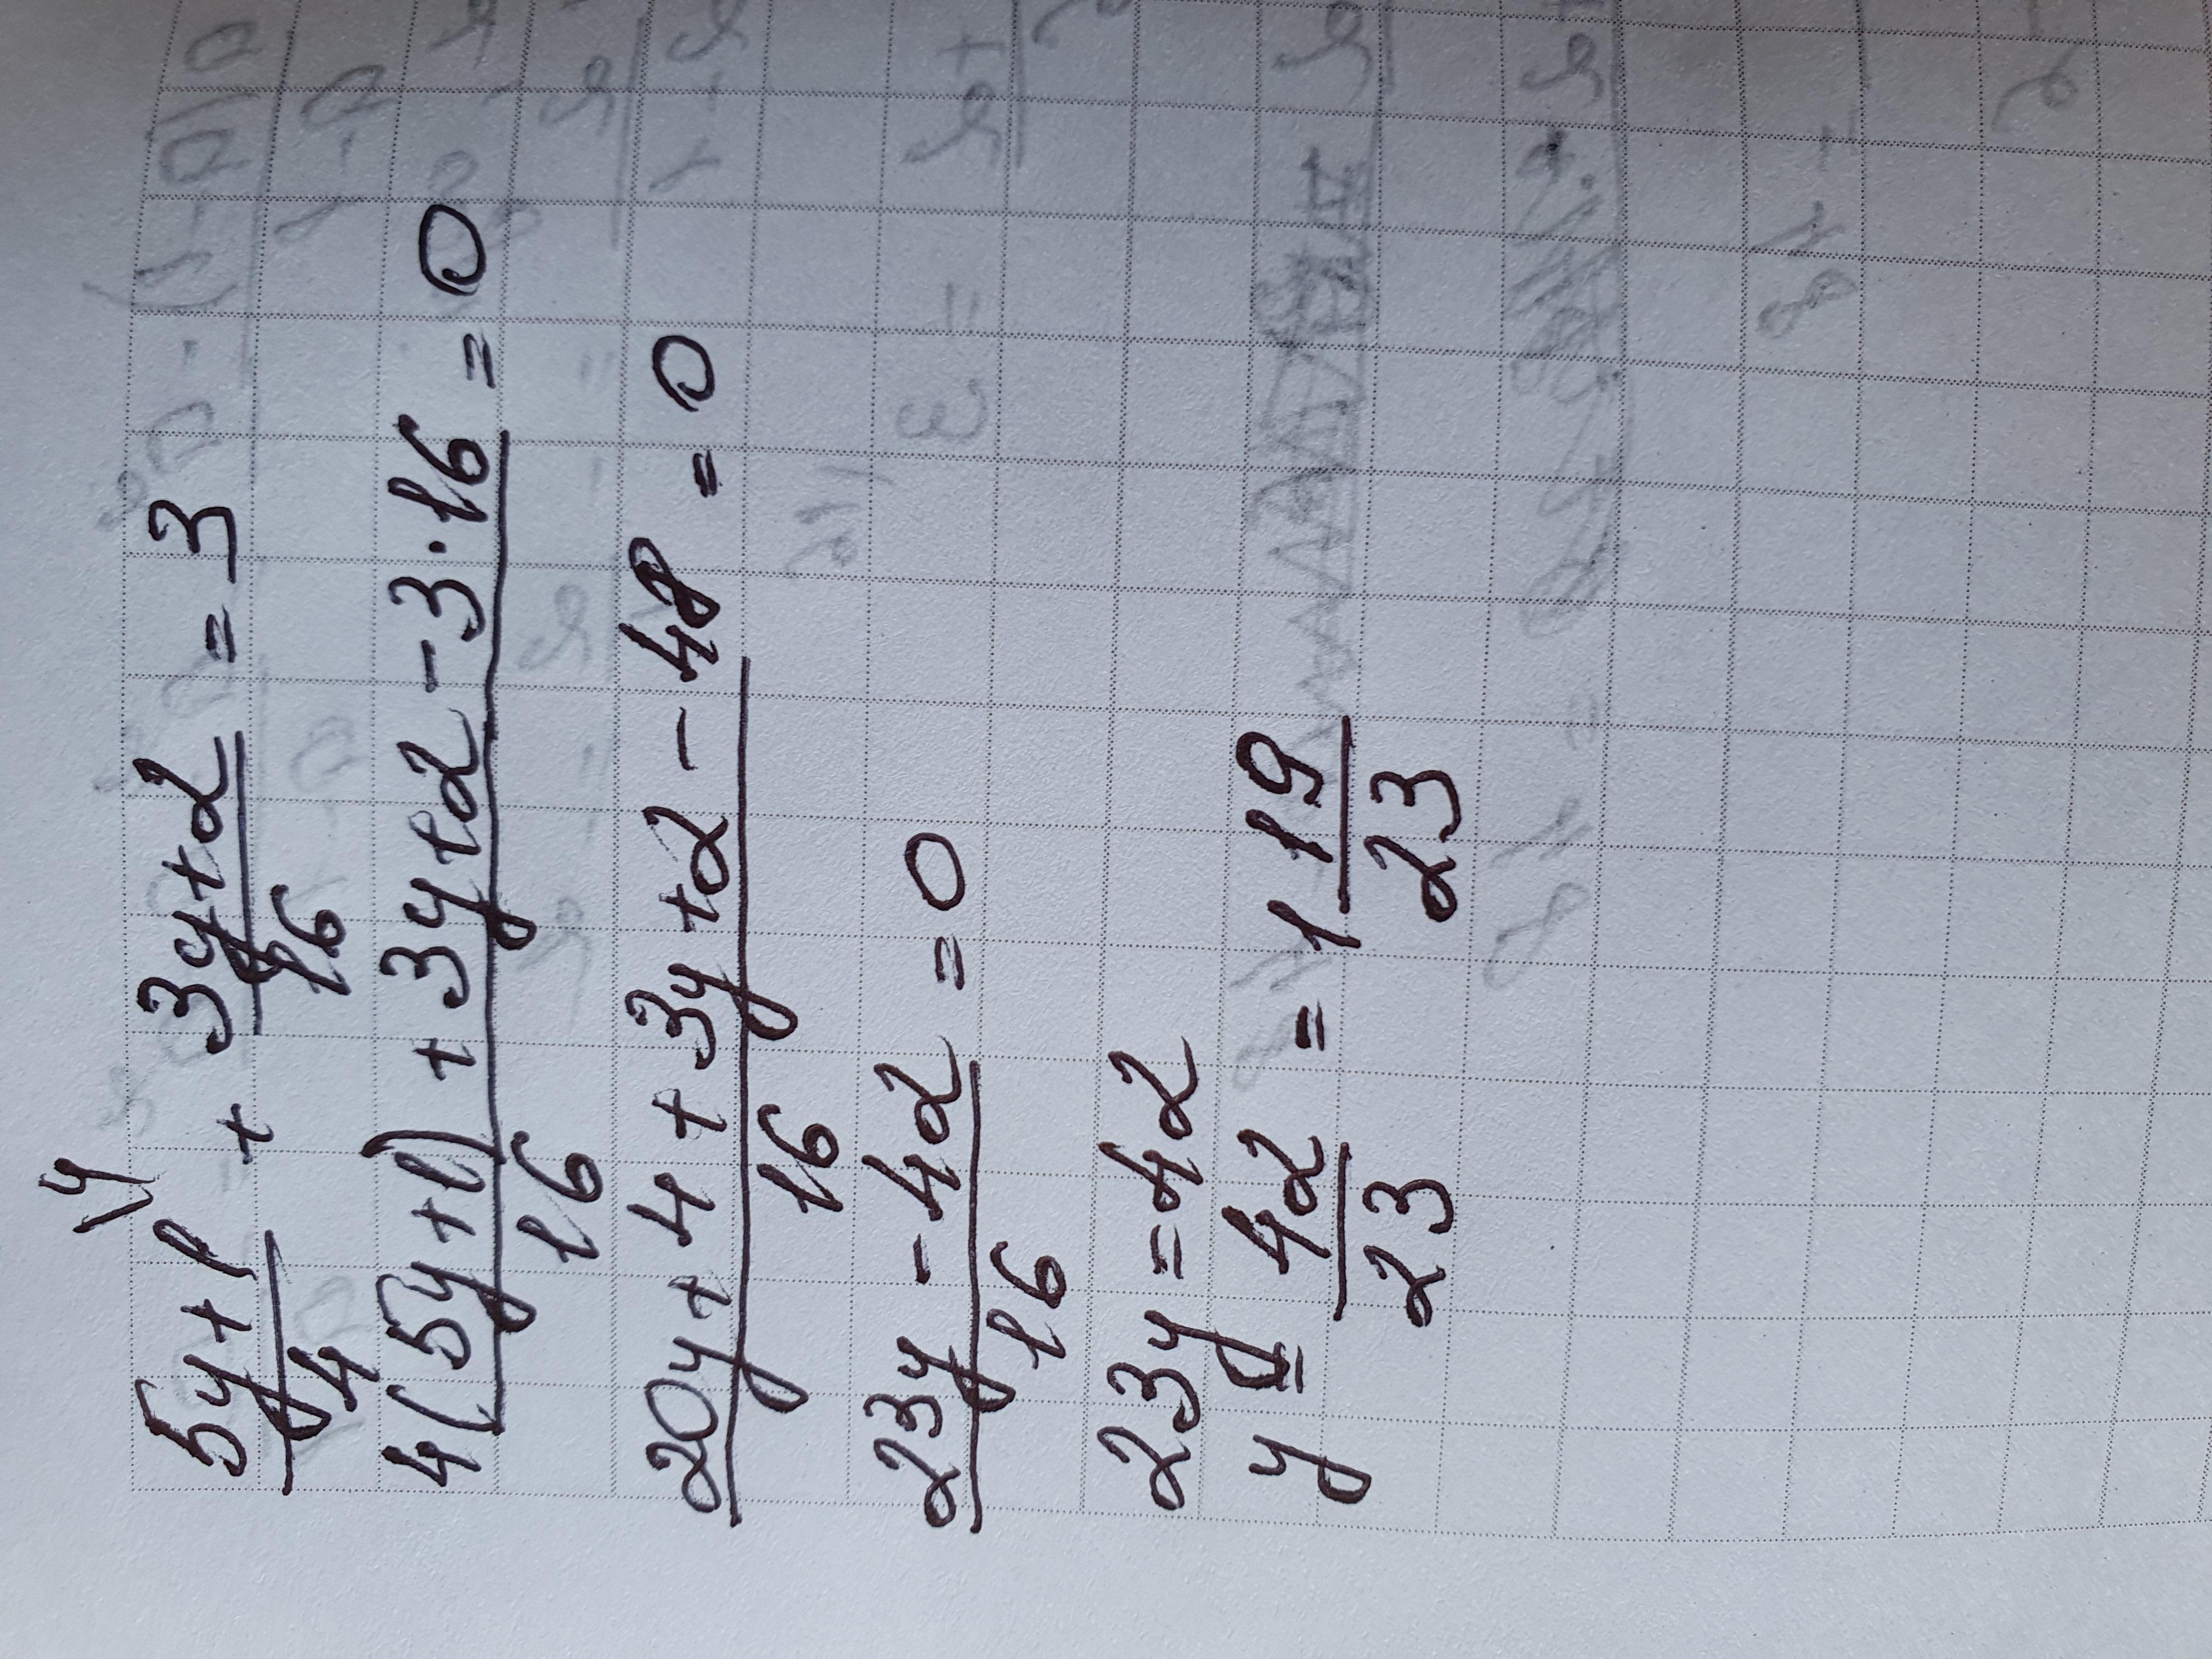 \4
5y+1/4 + 3y+2/16 = 3
4(5y+1) + 3y+2 - 3·16/16 = 0
20y + 4 + 3y + 2 - 48/16 = 0
23y - 42/16 = 0
23y = 42
y = 42/23 = 1 19/23